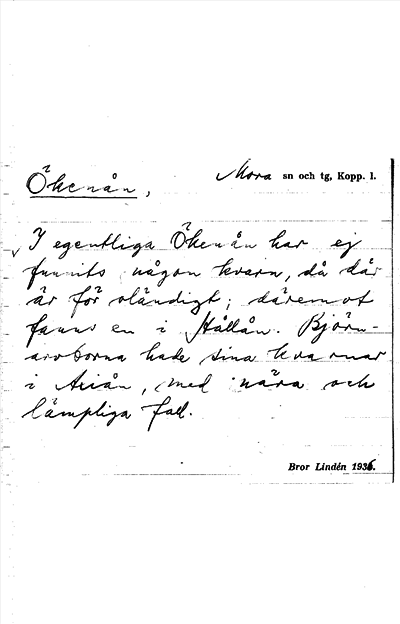 Ökenån,
Mora sn och tg, Kopp. l.
I egentliga Ökenån har ej
funnits någon kvarn, då där
är för oländigt; däremot
fanns en i Hållån. Björn-
arvborna hade sina kvarnar
i , med nära och
lämpliga fall.
Bror Lindén 1936.